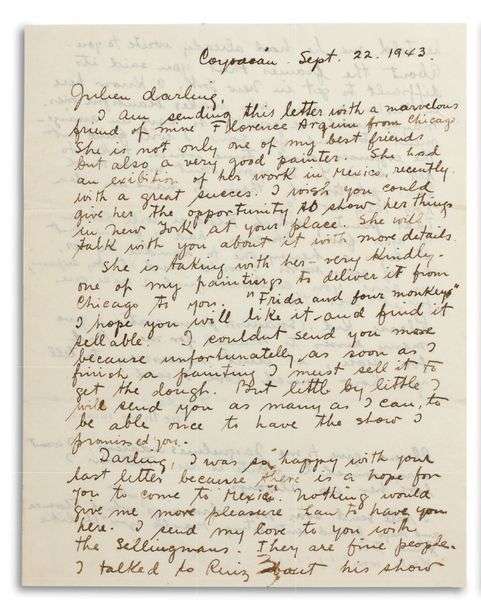 Coyoacán. Sept. 22. 1943.
Julien darling,
I am sending this letter with a marvelous
friend of mine Florence Arquin from Chicago
She is not only one of my best friends
but also a very good painter. She had
an exibition of her work in Mexico, recently
with a great succes. I wish you could
give her the opportunity to show her things
in New York at your place. She will
talk with you about it with more details
She is taking with her - very kindly -
one of my paintings to deliver it from
Chicago to you. "Frida and four monkeys"
I hope you will like it and find it
sellable. I couldn't send you more
because unfortunatelly as soon as I
finish a painting I must sell it to
get the dough. But little by little I
will send you as many as I can, to
be able once to have the show I
promised you.
Darling, I was so happy with your
last letter because there is a hope for
you to come to Mexico. Nothing would
give me more pleasure than to have you
here. I send my love to you with
the Sellingmans. They are fine people.
I talked to Ruiz about his show